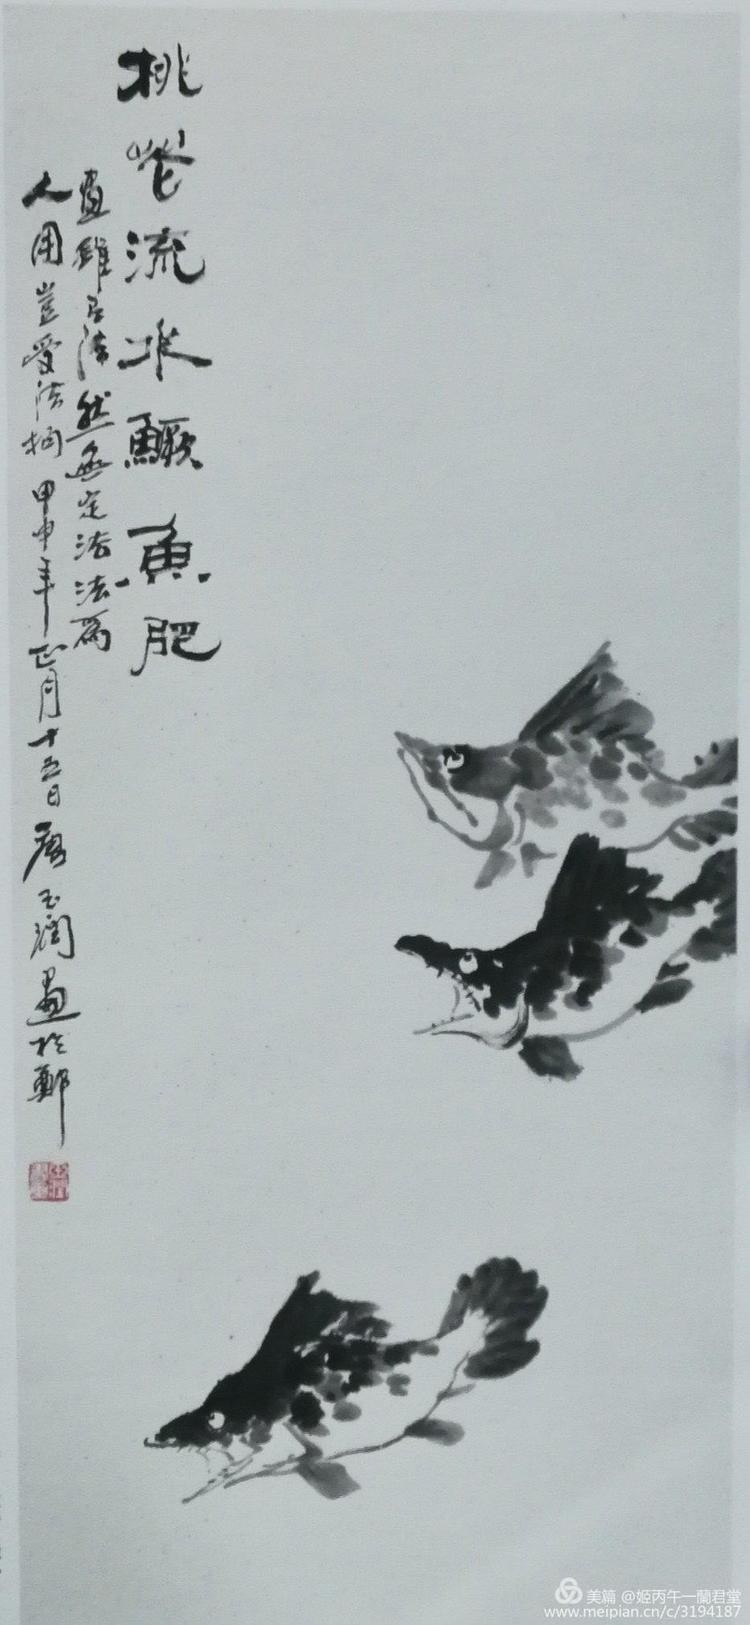 桃花流水鳜魚肥
畫雖有法然無定法法爲
人用豈受法拘甲申年正月十五日唐玉潤畫於鄭
美篇 @姬丙午一蘭君堂
www.meipian.cn/c/3194187